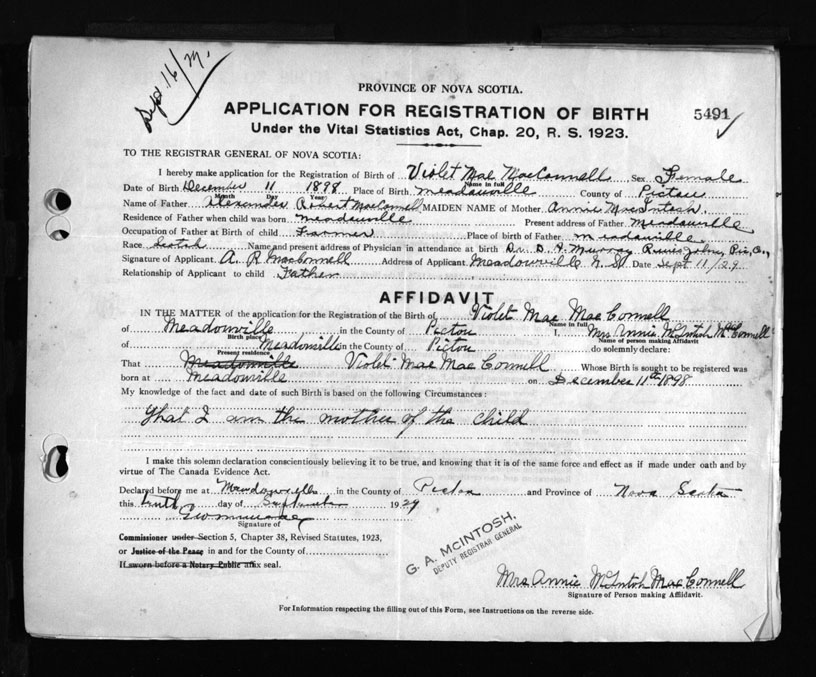 Sept 16/29.
PROVINCE OF NOVA SCOTIA.
APPLICATION FOR REGISTRATION OF BIRTH
5491
Under the Vital Statistics Act, Chap. 20, R. S. 1923.
TO THE REGISTRAR GENERAL OF NOVA SCOTIA:
I hereby make application for the Registration of Birth of Violet Mae MacConnell Sex Female
Name in full
Date of Birth December 11 1898 Place of Birth Meadowville County of Pictou
Month Day Year
Name of Father Alexander Robert MacConnell MAIDEN NAME of Mother Annie MacIntosh.
Residence of Father when child was born Meadowville Present address of Father Meadowville
Occupation of Father at Birth of child Farmer Place of birth of Father Meadowville
Race Scotch Name and present address of Physician in attendance at birth Dr. D. A. Murray, River John, Pic, Co.,
Signature of Applicant A. R MacConnell Address of Applicant Meadowville N. S. Date Sept 11/29
Relationship of Applicant to child Father
AFFIDAVIT
IN THE MATTER of the application for the Registration of the Birth of Violet Mae MacConnell
Name in full
of Meadowville in the County of Pictou I, Mrs Annie McIntosh McConnell
Birth place Name of person making Affidavit
of Meadowville in the County of Pictou do solemnly declare:
Present residence
That Meadowville Violet Mae MacConnell Whose Birth is sought to be registered was
born at Meadowville on December 11th 1898
My knowledge of the fact and date of such Birth is based on the following Circumstances:
That I am the mother of the child
I make this solemn declaration conscientiously believing it to be true, and knowing that it is of the same force and effect as if made under oath and by
virtue of The Canada Evidence Act.
Declared before me at Meadowville in the County of Pictou and Province of Nova Scotia
this tenth day of September 1929
Signature of
Commissioner under Section 5, Chapter 38, Revised Statutes, 1923,
or Justice of the Peace in and for the County of
If sworn before a Notary Public affix seal.
G. A. McINTOSH,
DEPUTY REGISTRAR GENERAL
Mrs Annie McIntosh MacConnell
Signature of Person making Affidavit.
For Information respecting the filling out of this Form, see Instructions on the reverse side.